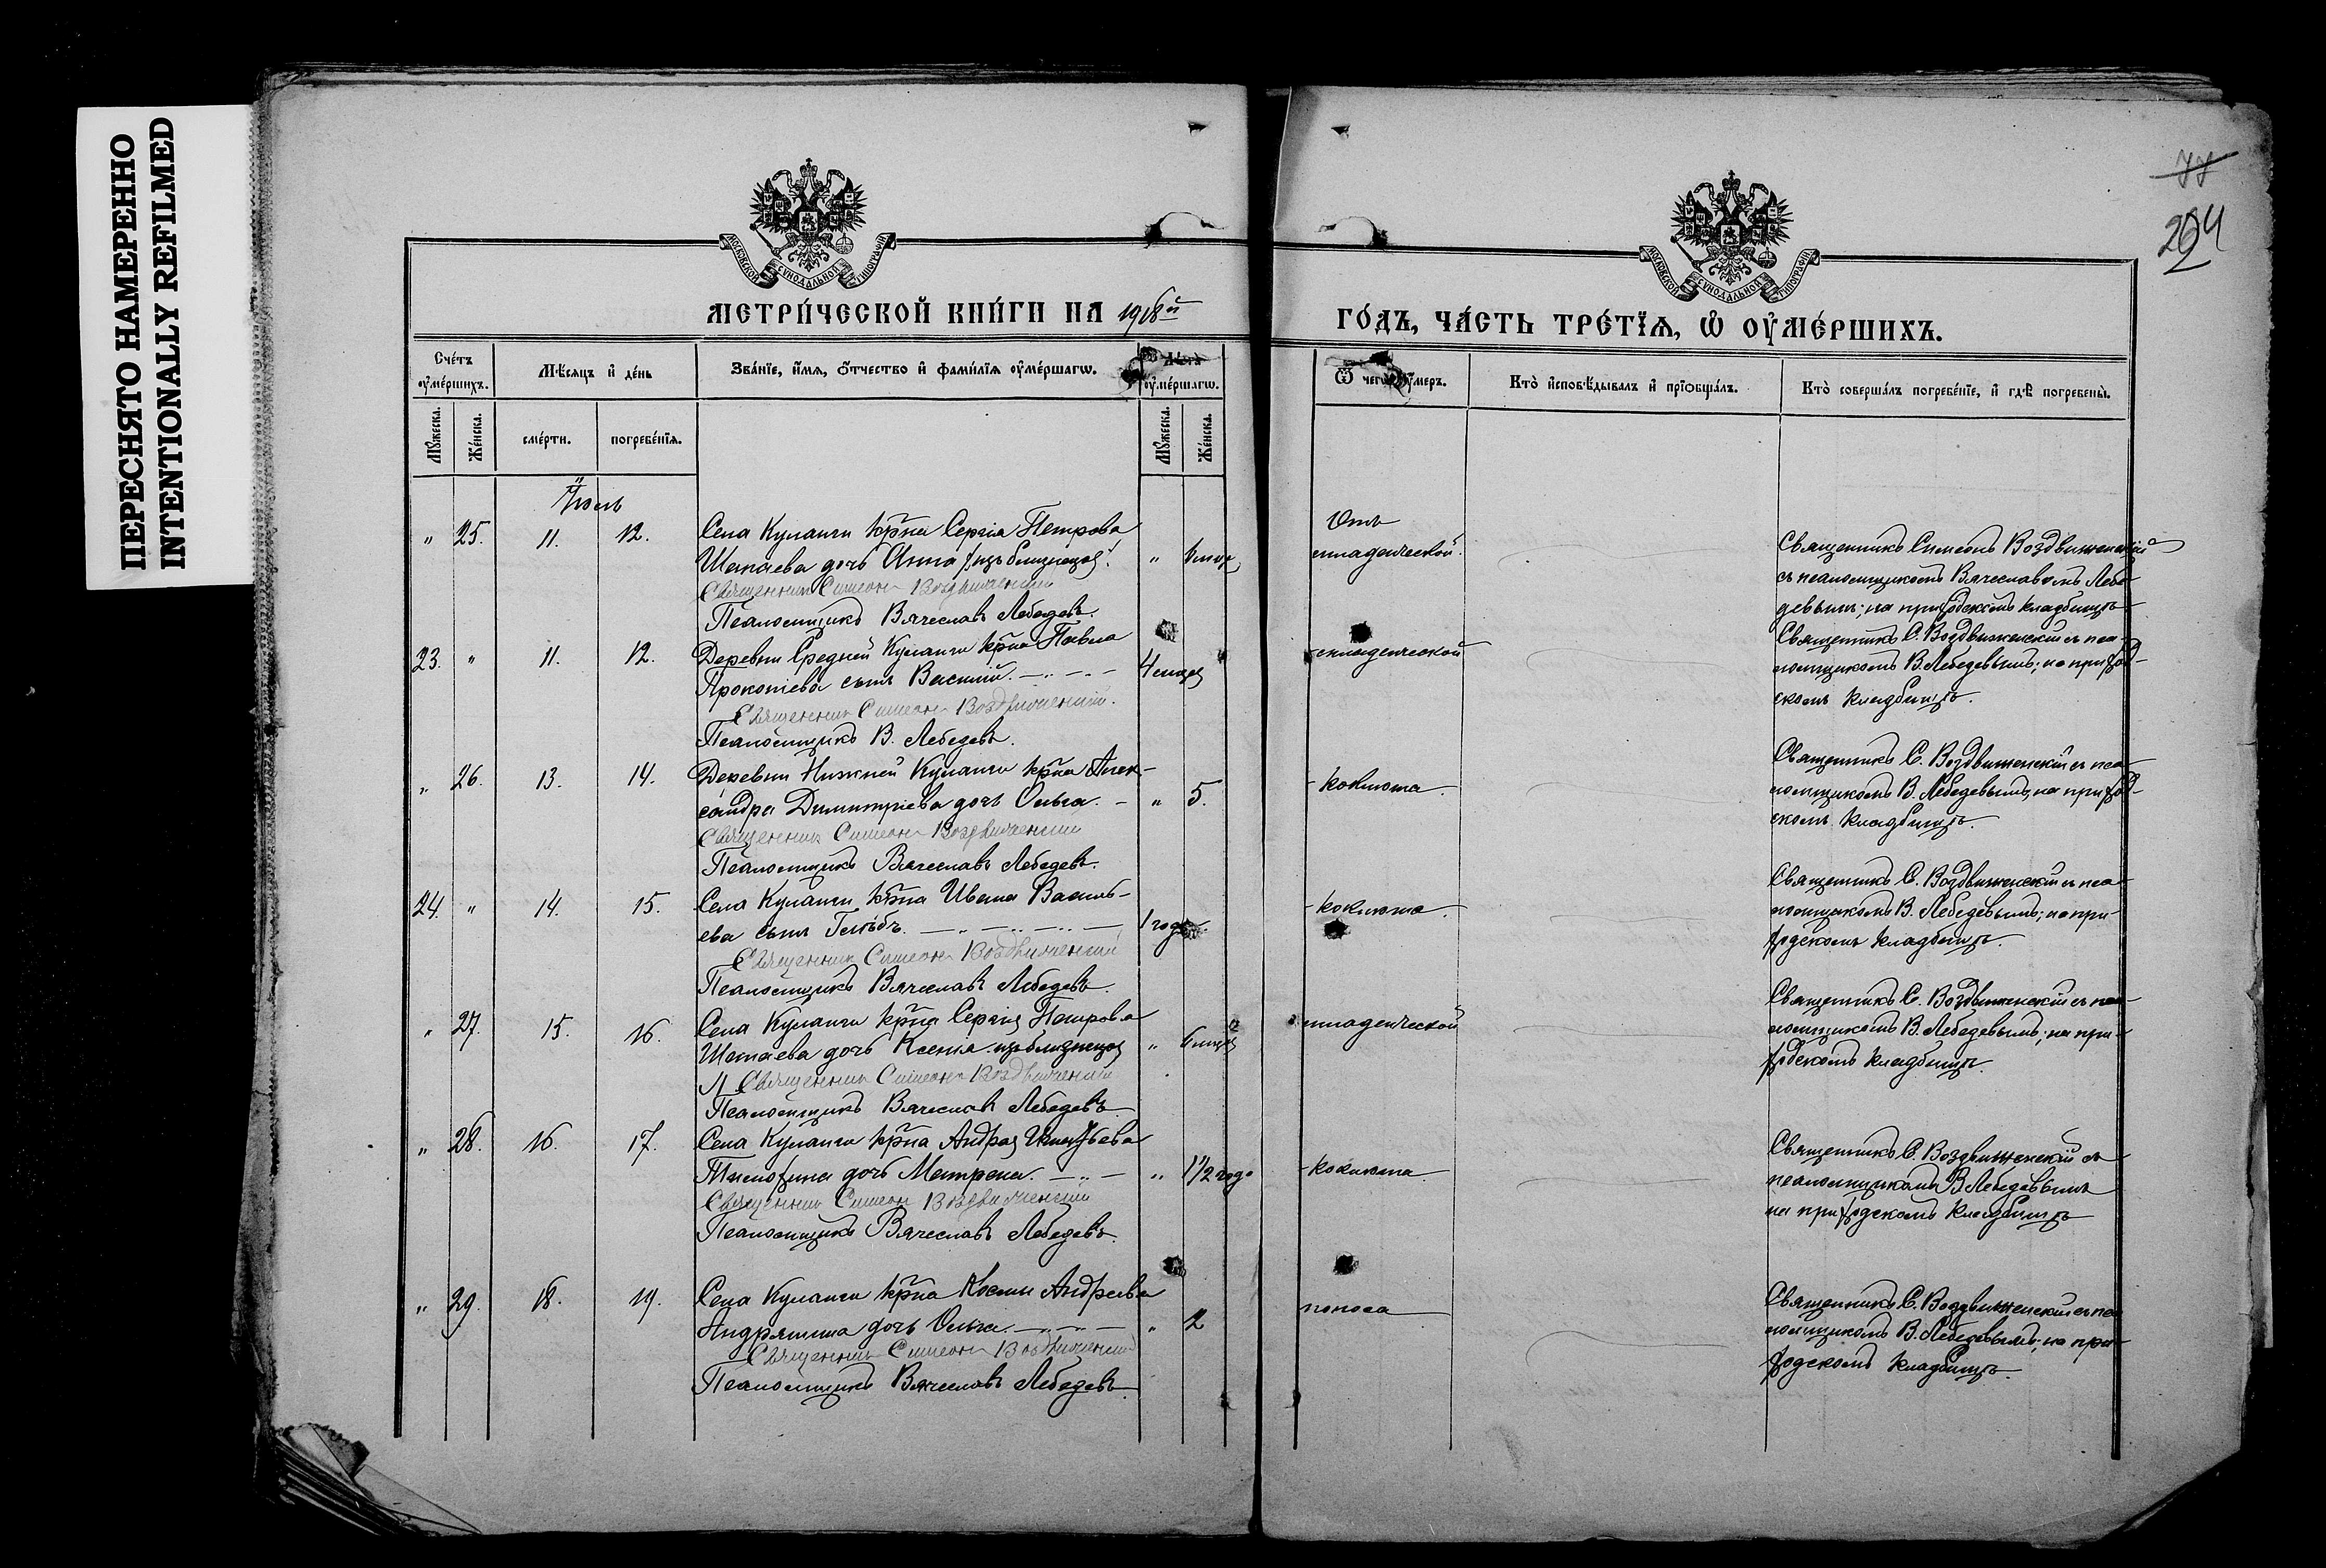 ПЕРЕСНЯТО НАМЕРЕННО
INTENTIONALLY REFILMED
77
204
МОСКОВСКОЙ СѴНОДАЛЬНОЙ ТИПОГРАФІИ
МОСКОВСКОЙ СѴНОДАЛЬНОЙ ТИПОГРАФІИ
МЕТРИ́ЧЕСКОЙ КНИ́ГИ НА 1918й
ГО́ДЪ, ЧА́СТЬ ТРЕ́ТЇѦ, Ѡ҆ ОУ҆МЕ́РШИХЪ.
Сче́тъ оу҆ме́ршихъ.
Мѣ́сяцъ и҆ де́нь
Зва́нїе, и҆́мя, ѻ҆́тчество и҆ фами́лїя оу҆ме́ршагѡ.
Лѣ́та оу҆ме́ршагѡ.
Ѿ чегѡ̀ оу҆́меръ.
Кто̀ и҆сповѣ́дывалъ и҆ прїѡбща́лъ.
Кто̀ соверша́лъ погребе́нїе, и҆ гдѣ̀ погребены̀.
Мꙋ́жеска.
Же́нска.
сме́рти.
погребе́нїя.
Мꙋ́жеска.
Же́нска.
Іюль
" 25. 11. 12. Села Куланги кр̃на Сергія Петрова
Шатаева дочь Анна (изъ близнецов). "
Священник Симеон Воздвиженский
Псаломщикъ Вячеславъ Лебедевъ.
Отъ
младенческой.
Священникъ Симеонъ Воздвиженскій
съ псаломщикомъ Вячеславомъ Лебе-
девымъ; на приходскомъ кладбищѣ
23. " 11. 12. Деревни Средней Куланги кр̃на Павла
Прокопіева сынъ Василій. 4 месяц
Священник Симеон Воздвиженский.
Псаломщикъ В. Лебедевъ.
младенческой
Священникъ С. Воздвиженскій съ пса-
ломщикомъ В. Лебедевымъ; на приход-
скомъ кладбищѣ.
" 26. 13. 14. Деревни Нижней Куланги кр̃на Алек-
сандра Димитріева дочь Ольга. - " 5.
Священник Симеон Воздвиженский
Псаломщикъ Вячеславъ Лебедевъ.
- коклюша.
Священникъ С. Воздвиженскій съ пса-
ломщикомъ В. Лебедевымъ, на приход-
скомъ кладбищѣ.
24. " 14. 15. Села Куланги кр̃на Ивана Василь-
ева сынъ Глѣбъ. 1 годъ
Священник Симеон Воздвиженский
Псаломщикъ Вячеславъ Лебедевъ.
- коклюша.
Священникъ С. Воздвиженскій съ пса-
ломщикомъ В. Лебедевымъ; на при-
ходскомъ кладбищѣ.
" 27. 15. 16. Села Куланги кр̃на Сергія Петрова
Шатаева дочь Ксенія изъ близнецов "
Священник Симеон Воздвиженский
Псаломщикъ Вячеславъ Лебедевъ
младенческой
Священникъ С. Воздвиженскій съ пса-
ломщикомъ В. Лебедевымъ; на при-
ходскомъ кладбищѣ.
" 28. 16. 17. Села Куланги кр̃на Андрея
дочь Матрена. " 1 1/2 года
Священник Симеон Воздвиженский
Псаломщикъ Вячеславъ Лебедевъ.
- коклюша.
Священникъ С. Воздвиженскій съ
псаломщикомъ В Лебедевымъ
на приходскомъ кладбищѣ
" 29. 18. 19. Села Куланги кр̃на Космы Андреева
Андряшина дочь Ольга. " 2
Священник Симеон Воздвиженский
Псаломщикъ Вячеславъ Лебедевъ.
поноса
Священникъ С. Воздвиженскій съ пса-
ломщикомъ В. Лебедевымъ, на при-
ходскомъ кладбищѣ.